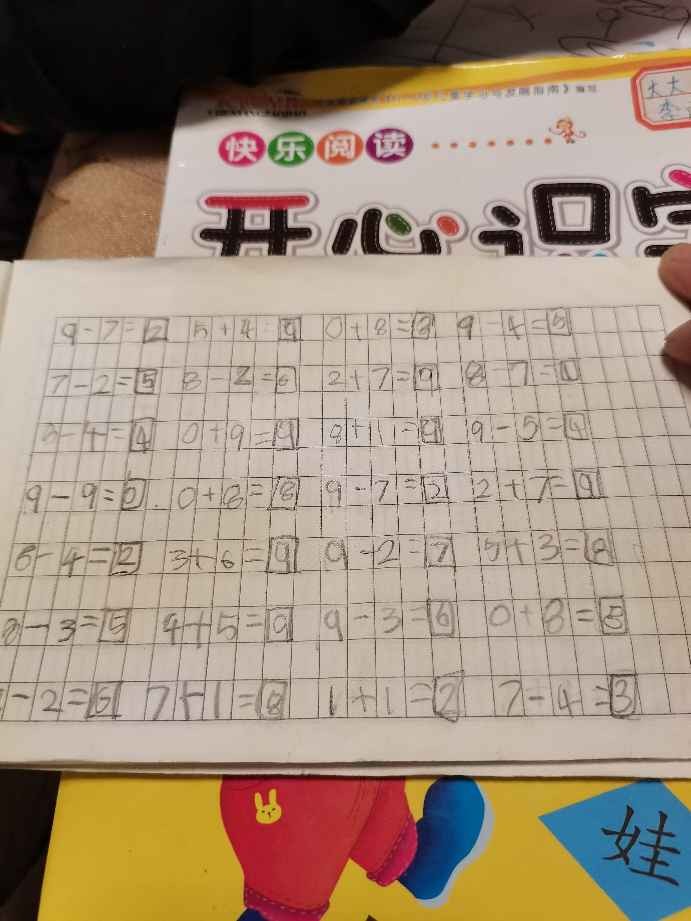 快乐阅读
开心识字
9-7=2 5+4=9 0+8=8 9-4=5
7-2=5 8-2=6 2+7=9 8-7=1
-4=4 0+9=9 8+1=9 9-5=4
9-9=0 0+8=8 9-7=2 2+7=9
6-4=2 3+6=9 9-2=7 5+3=8
8-3=5 4+5=9 9-3=6 0+8=8
-2=6 7+1=8 1+1=2 7-4=3
娃